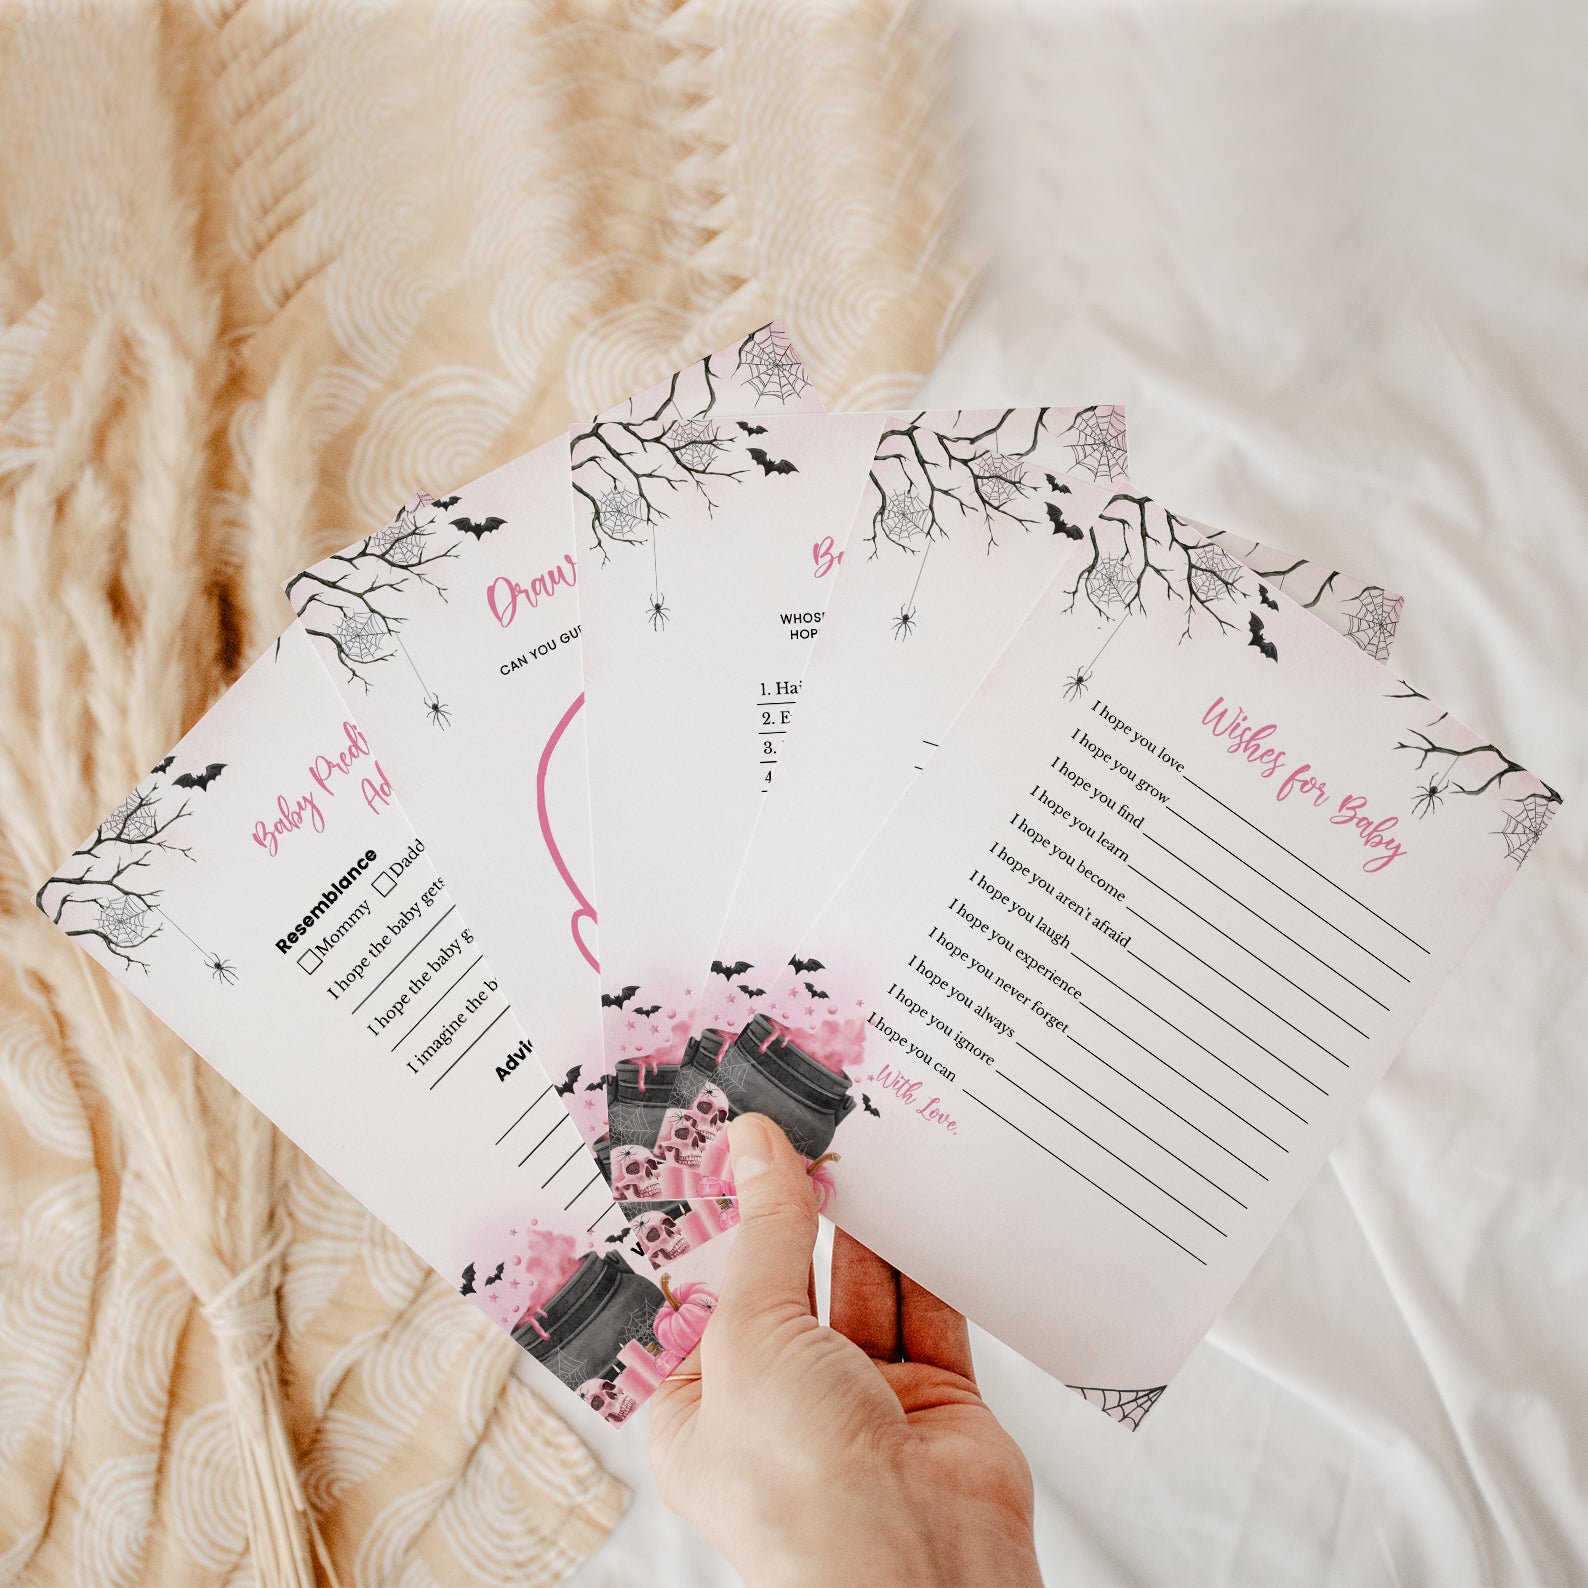 Baby
Resemblance
Mommy
I hope the baby gets
I hope the baby
I imagine the
Draw
CAN YOU
1.
2.
3.
Wishes for Baby
I hope you love
I hope you grow
I hope you find
I hope you learn
I hope you become
I hope you aren't afraid
I hope you laugh
I hope you experience
I hope you never forget
I hope you always
I hope you ignore
I hope you can
With Love,